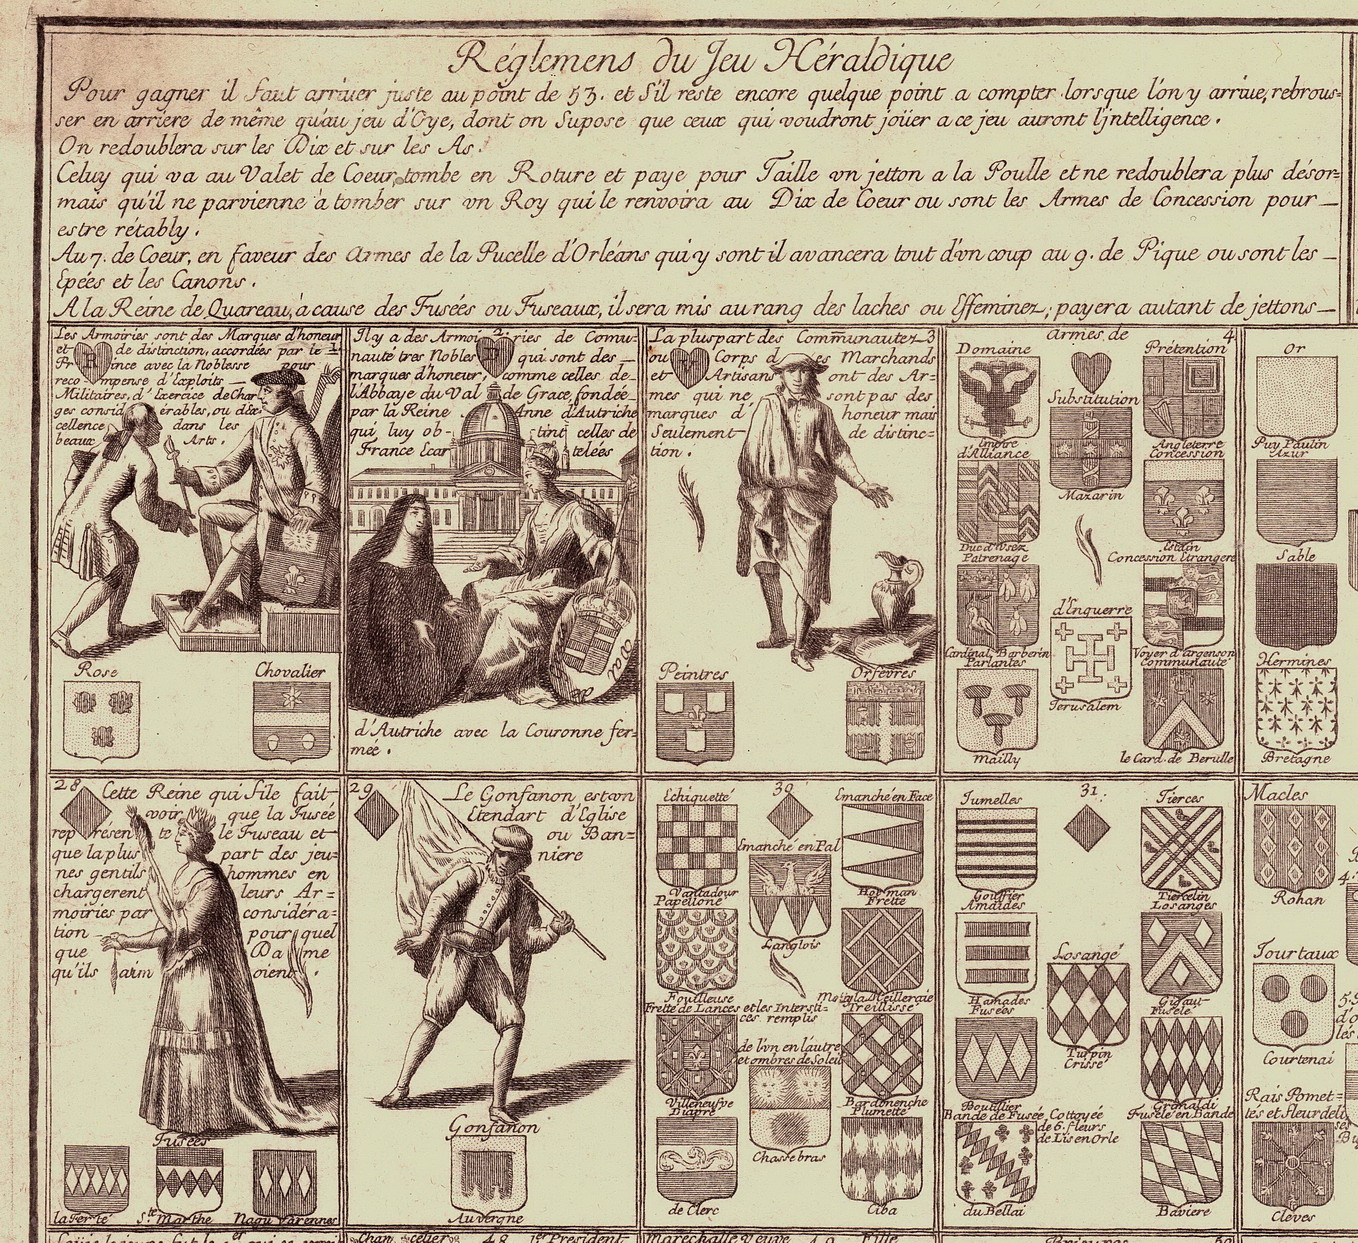 Réglemens du Jeu Héraldique
Pour gagner il faut arriuer juste au point de 53. et s'il reste encore quelque point a compter lorsque l'on y arriue, rebrous=
ser en arriere de même qu'au jeu d'Oye, dont on Supose que ceux qui voudront joüer a ce jeu auront l'jntelligence.
On redoublera sur les Dix et sur les As.
Celuy qui va au Valet de Coeur, tombe en Roture et paye pour Taille vn jetton a la Poulle et ne redoublera plus désor=
mais qu'il ne parvienne à tomber sur vn Roy qui le renvoira au Dix de Coeur ou sont les Armes de Concession pour
estre rétably.
Au 7. de Coeur, en faveur des Armes de la Pucelle d'Orléans qui y sont il avancera tout d'vn coup au 9. de Pique ou sont les
Epées et les Canons.
A la Reine de Quareau, à cause des Fusées ou Fuseaux, il sera mis au rang des laches ou Effeminez, payera autant de jettons
Les Armoiries sont des Marques d'honeur
et R de distinction, accordées par le 1
Prince avec la Noblesse pour
recompense d'Exploits
Militaires, d'Exercice de Char
ges considérables, ou d'Ex
cellence dans les
beaux Arts.
Rose
Chovalier
Il y a des Armoiries de Commu= 2
nauté tres Nobles D qui sont des
marques d'honeur, comme celles de
l'Abbaye du Val de Grace, fondée
par la Reine Anne d'Autriche
qui luy obtint celles de
France Ecartelées
d'Autriche avec la Couronne fer=
mée.
La pluspart des Communautez 3
ou V Corps des Marchands
et Artisans ont des Ar=
mes qui ne sont pas des
marques d'honeur mais
Seulement de distinc=
tion.
Peintres
Orfévres
armes de
4
Domaine
Prétention
Substitution
Empire
d'Alliance
Angleterre
Concession
Mazarin
Duc d'Usez
Patrenage
Estain
Concession Etrangere
d'Enquerre
Cardinal Barberin
Parlantes
Voyer d'argenson
Communauté
Jerusalem
Mailly
le Card. de Berulle
Or
Puy Paulin
Azur
Sable
Hermines
Bretagne
28
Cette Reine qui file fait
voir que la Fusée
représente le Fuseau et
que la plus part des jeu=
nes gentils hommes en
chargerent leurs Ar=
moiries par considéra=
tion pour quel
que Dame
qu'ils aimoient.
Fusées
la Ferté
Ste. Marthe
Nagu Varennes
29
Le Gonfanon est vn
Etendart d'Eglise
ou Ban=
niere
Gonfanon
Auvergne
30
Echiquetté
Emanché en Face
Emanché en Pal
Vantadour
Papelloné
Hotman
Freité
Langlois
Fouilleuse
Freité de Lances et les Intersti=
ces remplis
de l'vn en l'autre
et ombres de Soleil
Treillissé
Villeneufve
Diapré
Bardonenche
Plumetté
Chassebras
de Clerc
Ciba
31
Jumelles
Tierces
Gouffier
Amaides
Tiercelin
Losanges
Losangé
Hamades
Fusées
Gigaut
Fuselé
Turpin
Crissé
Boutillier
Bande de Fusée, Cottoyée
de 6. fleurs
de Lis en Orle
Grimaldi
Fuselé en Bande
du Bellai
Baviere
Macles
Rohan
Tourtaux
Courtenai
Rais Pomet=
tés et fleurdelis
Cleves